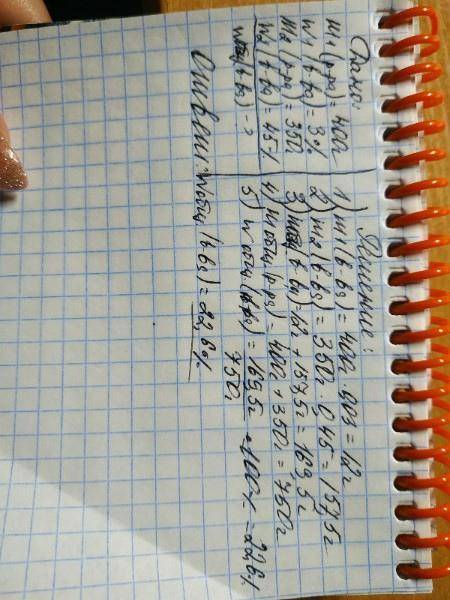 Дано:
m1 (р-ра) = 400г
w1 (в-ва) = 3%
m2 (р-ра) = 350г
w2 (в-ва) = 45%
wобщ (в-ва) - ?
Решение:
1) m1 (в-ва) = 400г · 0,03 = 12г
2) m2 (в-ва) = 350г · 0,45 = 157,5г
3) mобщ (в-ва) = 12г + 157,5г = 169,5г
4) mобщ (р-ра) = 400г + 350г = 750г
5) wобщ (в-ва) = 169,5г / 750г · 100% = 22,6%
Ответ: wобщ (в-ва) = 22,6%